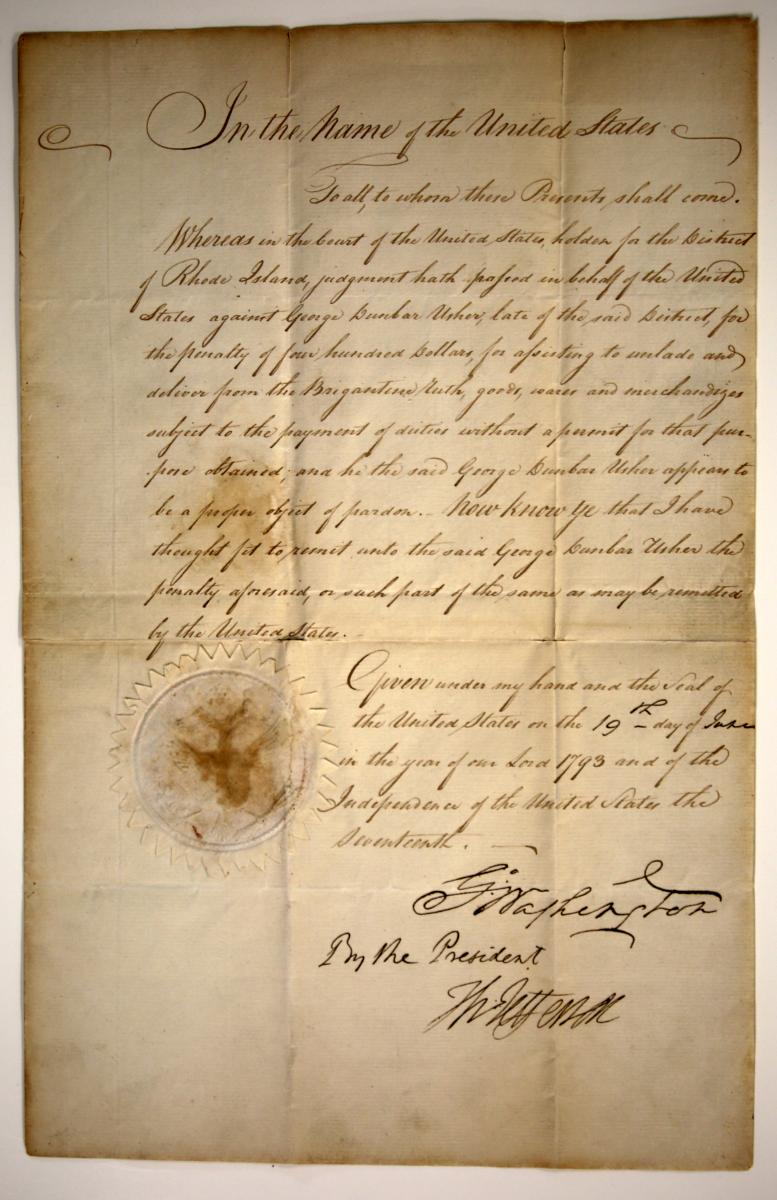 In the Name of the United States
To all, to whom these Presents, shall come.
Whereas in the Court of the United States, holden for the District
of Rhode Island, judgment hath passed in behalf of the United
States against George Dunbar Usher, late of the said District, for
the penalty of four hundred Dollars, for assisting to unlade and
deliver from the Brigantine Ruth, goods, wares and merchandizes
subject to the payment of duties without a permit for that pur-
-pose obtained; and he the said George Dunbar Usher appears to
be a proper object of pardon. — Now know Ye that I have
thought fit to remit unto the said George Dunbar Usher the
penalty aforesaid, or such part of the same as may be remitted
by the United States. —
Given under my hand and the Seal of
the United States on the 19th day of June
in the year of our Lord 1793 and of the
Independence of the United States the
Seventeenth. —
Go: Washington
By the President
Th: Jefferson